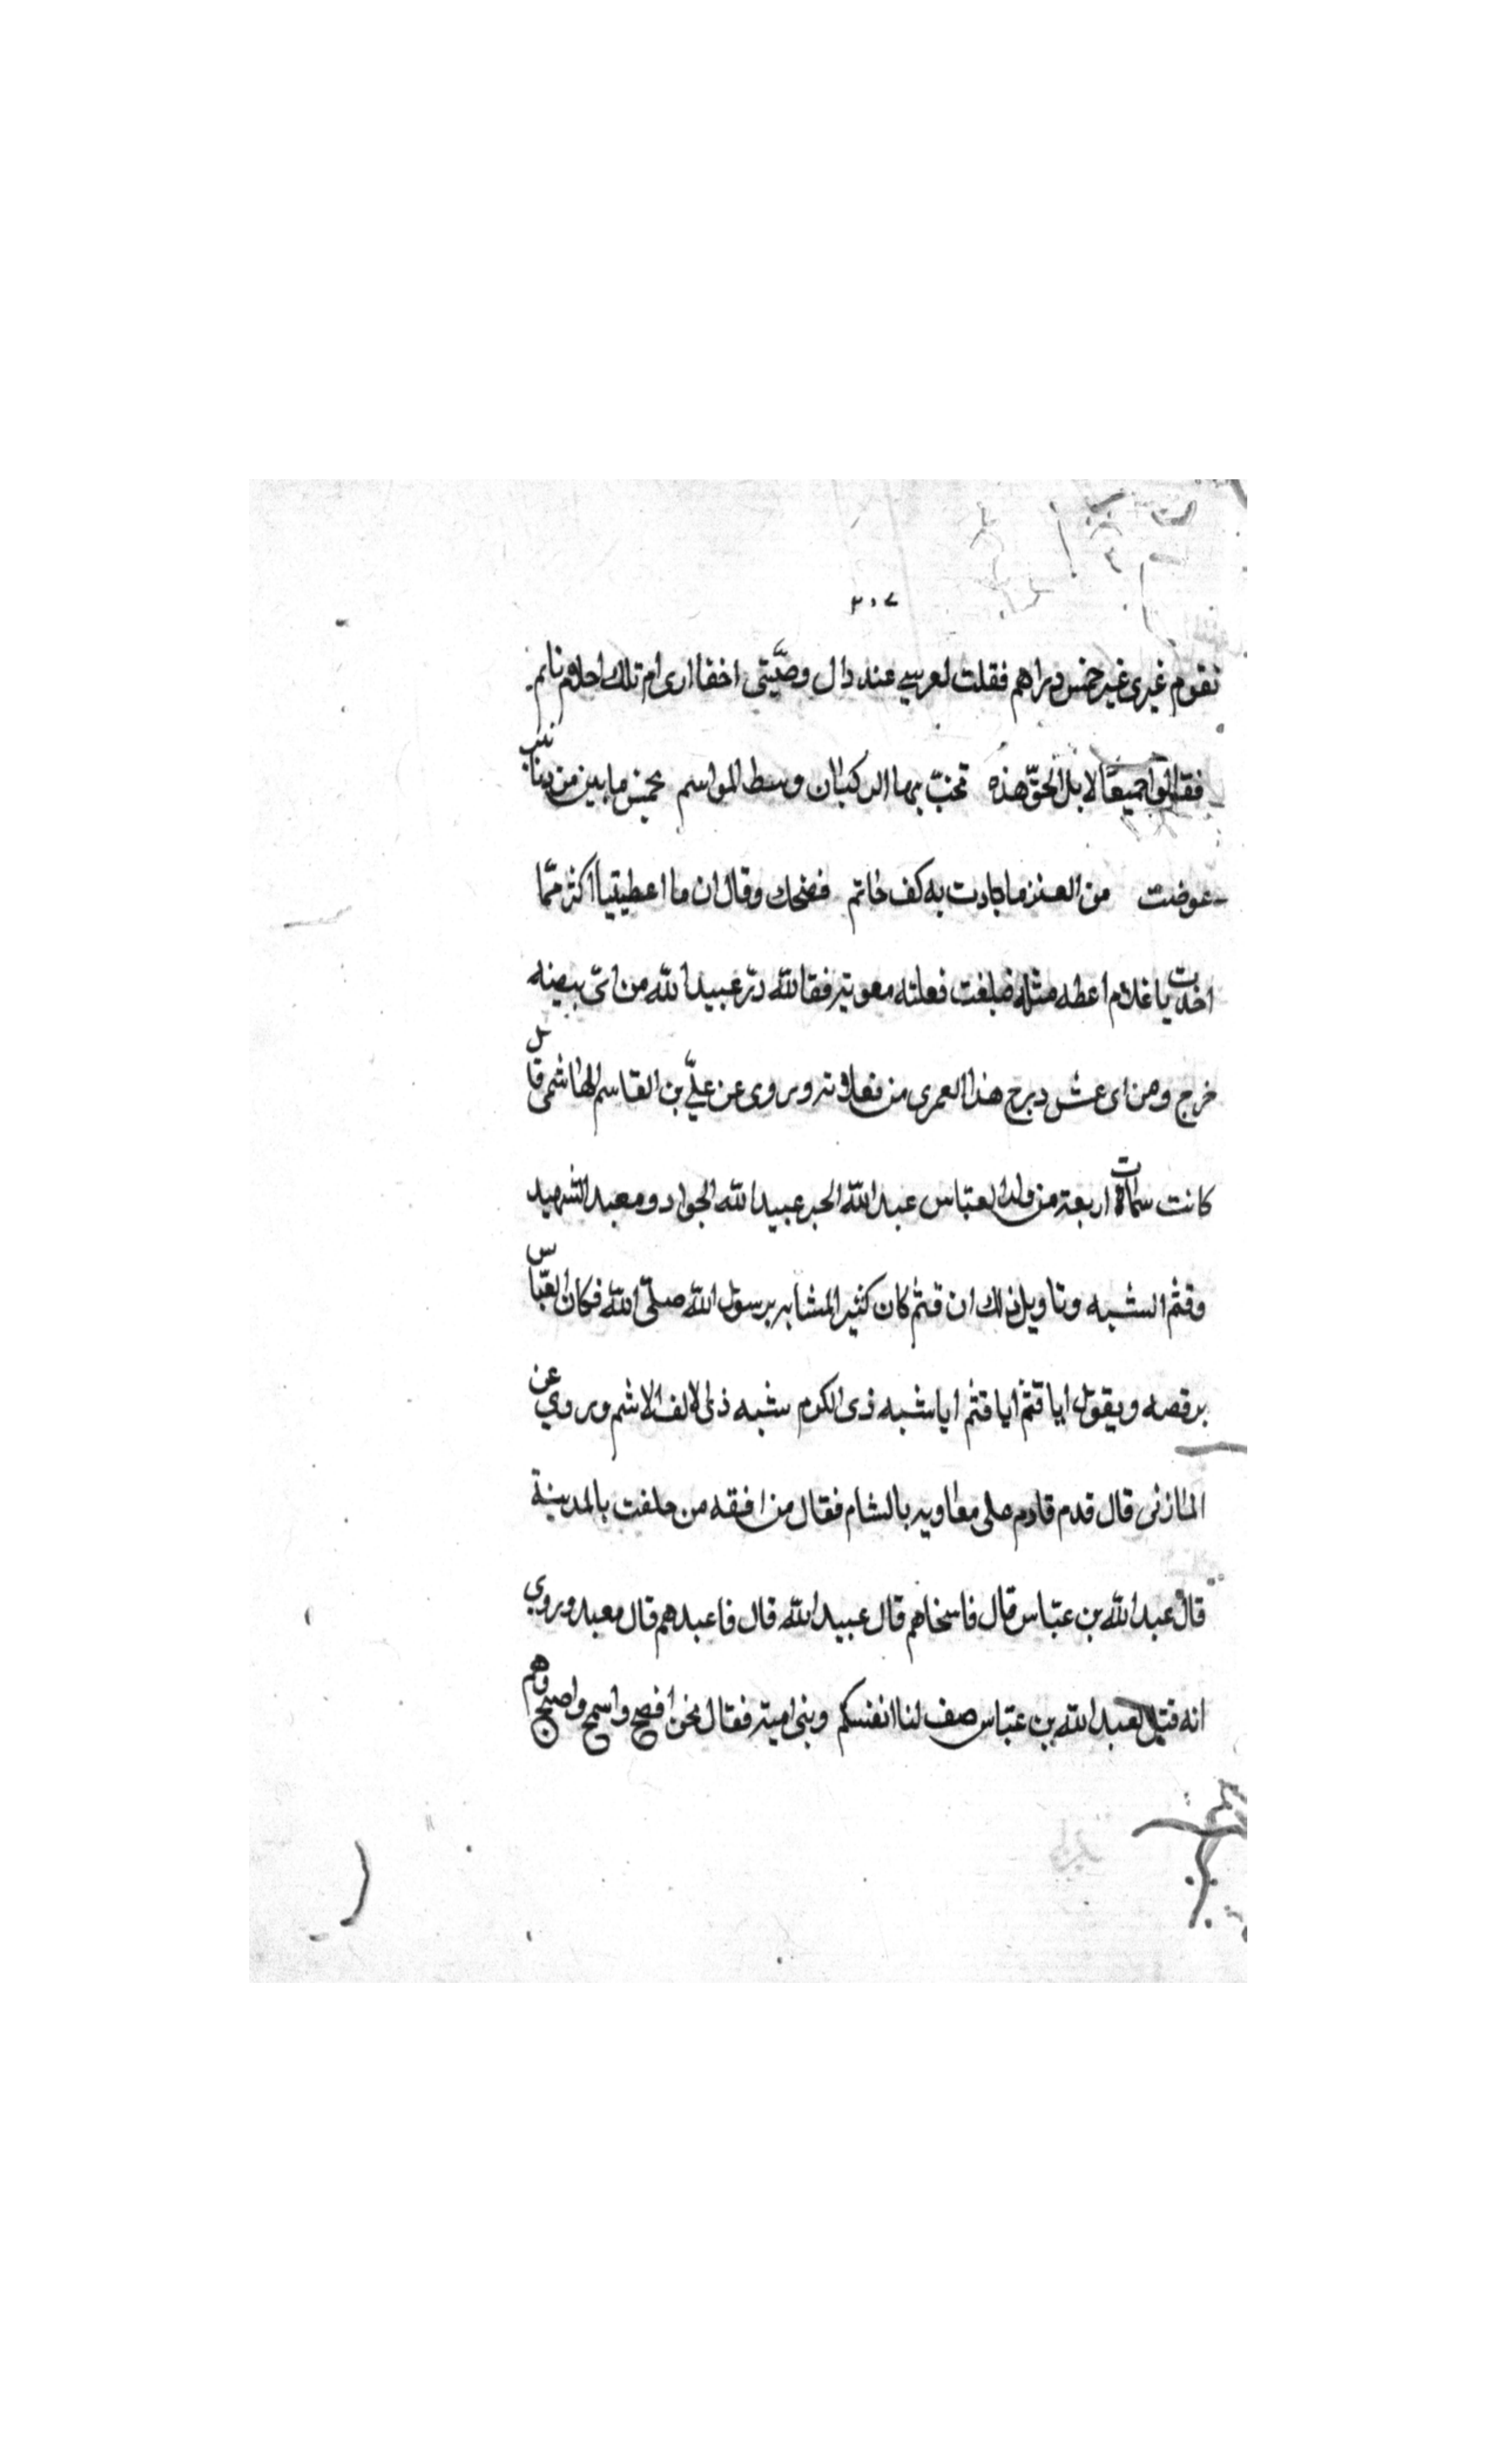 ٣٠٧
تقوم غيرى غير خمس دراهم فقلت لعرسي عند دال وصيّتى اخفا ارى ام تلك احلام نايم
فقالوا جميعًا لا بل الحقّ هذه تخبّ بها الركبان وسط المواسم بخمس ما بين من دنانير
عوضت من العنز ما جادت به كف حاتم فضحك وقال ان ما اعطيتيا اكثر ممّا
اخذت يا غلام اعطه مثله فبلغت فعلته معوية فقا لله درّ عبيد الله من اىّ بيضه
خرج ومن اى عش درج هذا لعمرى من فعلاته وروى عن عليّ بن القاسم الهاشمى قال
كانت سمات اربعة من ولد العبّاس عبد الله الحبر عبيد الله الجواد ومعبد الشهيد
وقثم الشبه وتاويل ذلك ان قثم كان كثير المشابه برسول الله صلّى الله فكان العبّاس
يرقصه ويقول ايا قثم ايا قثم ايا شبه ذى الكرم شبه ذى الانف الاشم وروي عن
المازنى قال قدم قادم على معاويه بالشام فقال من افقه من خلفت بالمدينة
قال عبد الله بن عبّاس قال فاسخاهم قال عبيد الله قال فاعبدهم قال معبد وروي
انه قيل لعبد الله بن عبّاس صف لنا انفسكم وبنى امية فقال نحن افصح واسمح واصبح وهم